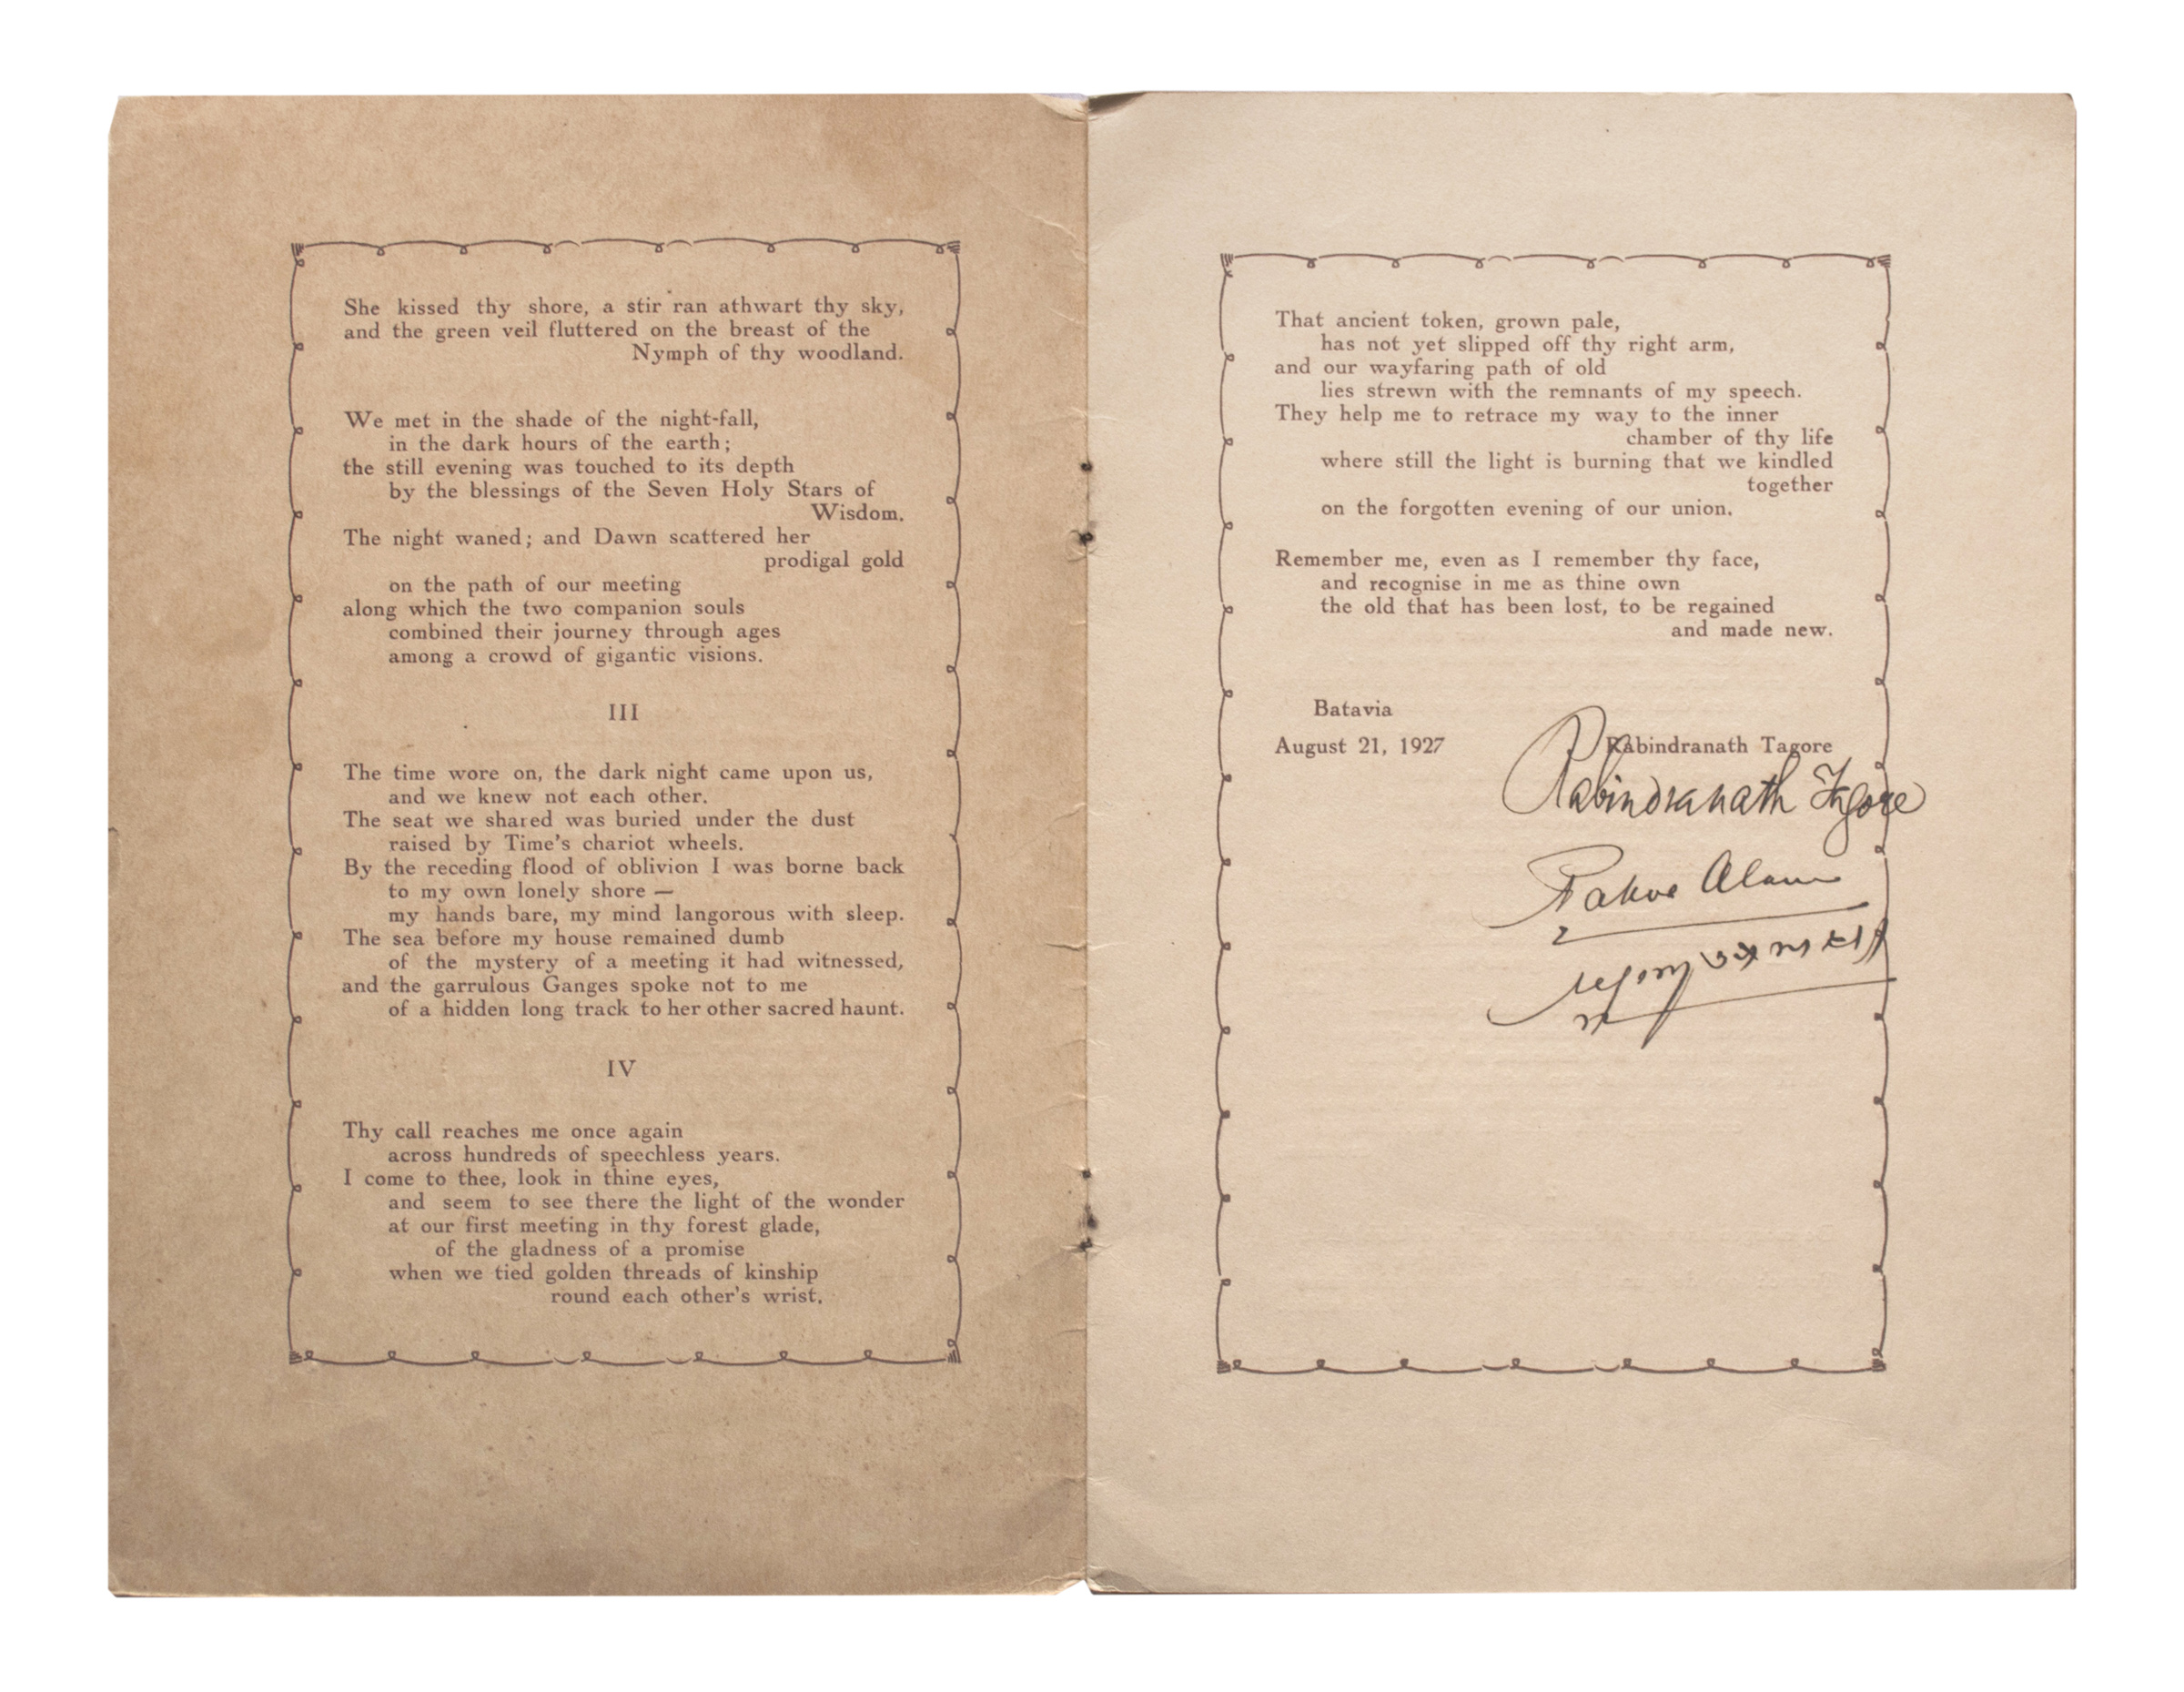 She kissed thy shore, a stir ran athwart thy sky,
and the green veil fluttered on the breast of the
Nymph of thy woodland.
We met in the shade of the night-fall,
in the dark hours of the earth;
the still evening was touched to its depth
by the blessings of the Seven Holy Stars of
Wisdom.
The night waned; and Dawn scattered her
prodigal gold
on the path of our meeting
along which the two companion souls
combined their journey through ages
among a crowd of gigantic visions.
III
The time wore on, the dark night came upon us,
and we knew not each other.
The seat we shared was buried under the dust
raised by Time's chariot wheels.
By the receding flood of oblivion I was borne back
to my own lonely shore —
my hands bare, my mind langorous with sleep.
The sea before my house remained dumb
of the mystery of a meeting it had witnessed,
and the garrulous Ganges spoke not to me
of a hidden long track to her other sacred haunt.
IV
Thy call reaches me once again
across hundreds of speechless years.
I come to thee, look in thine eyes,
and seem to see there the light of the wonder
at our first meeting in thy forest glade,
of the gladness of a promise
when we tied golden threads of kinship
round each other's wrist.
That ancient token, grown pale,
has not yet slipped off thy right arm,
and our wayfaring path of old
lies strewn with the remnants of my speech.
They help me to retrace my way to the inner
chamber of thy life
where still the light is burning that we kindled
together
on the forgotten evening of our union.
Remember me, even as I remember thy face,
and recognise in me as thine own
the old that has been lost, to be regained
and made new.
Batavia
August 21, 1927 Rabindranath Tagore
Rabindranath Tagore
Alam